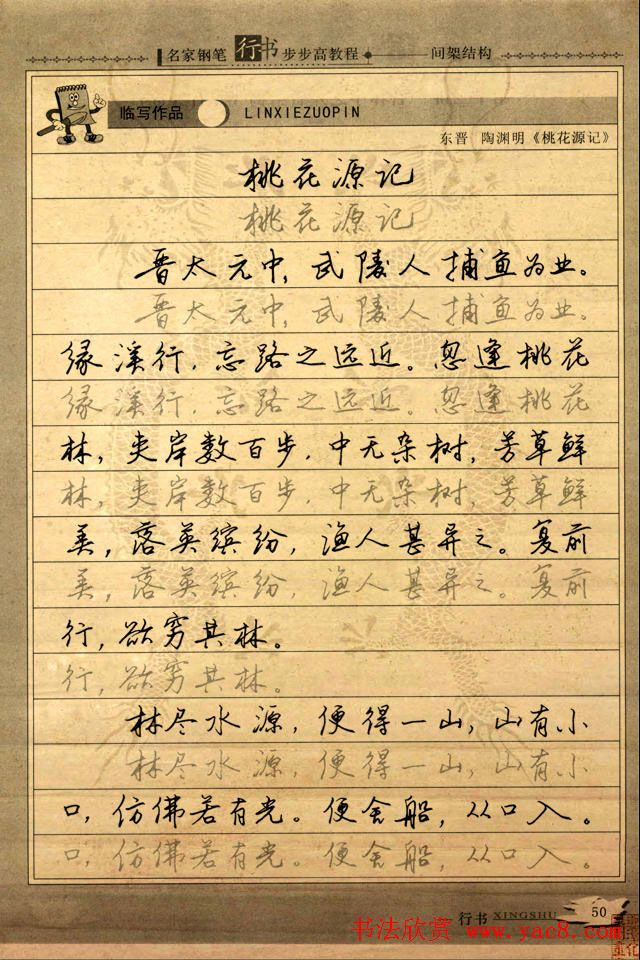 名家钢笔行书步步高教程 间架结构
临写作品 LINXIEZUOPIN
东晋 陶渊明《桃花源记》
桃花源记
桃花源记
晋太元中，武陵人捕鱼为业。
晋太元中，武陵人捕鱼为业。
缘溪行，忘路之远近。忽逢桃花
缘溪行，忘路之远近。忽逢桃花
林，夹岸数百步，中无杂树，芳草鲜
林，夹岸数百步 中无杂树，芳草鲜
美，落英缤纷，渔人甚异之。复前
美，落英缤纷，渔人甚异之。复前
行，欲穷其林。
行，欲穷其林。
林尽水源，便得一山，山有小
林尽水源，便得一山，山有小
口，仿佛若有光。便舍船，从口入。
口，仿佛若有光。便舍船，从口入。
行书 XINGSHU 50
书法欣赏 www.yac8.com